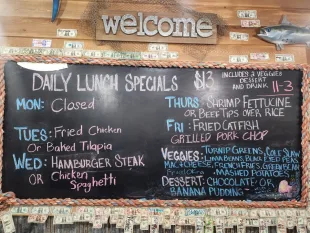 welcome
DAILY LUNCH SPECIALS $13 INCLUDES 2 VEGGIES
DESSERT
AND DRINK 11-3
MON: Closed
TUES: Fried Chicken
Or Baked Tilapia
WED: HAMBURGER STEAK
OR Chicken
Spaghetti
THURS: SHRIMP FETTUCINE
OR BEEF TIPS OVER RICE
FRI: FRIED CATFISH
GRILLED PORK CHOP
VEGGIES: TURNIP GREENS, COLE SLAW
LIMA BEANS, BLACK EYED PEAS
MAC & CHEESE, FRENCH FRIES, GREEN BEANS
MASHED POTATOES
DESSERT: CHOCOLATE OR
BANANA PUDDING